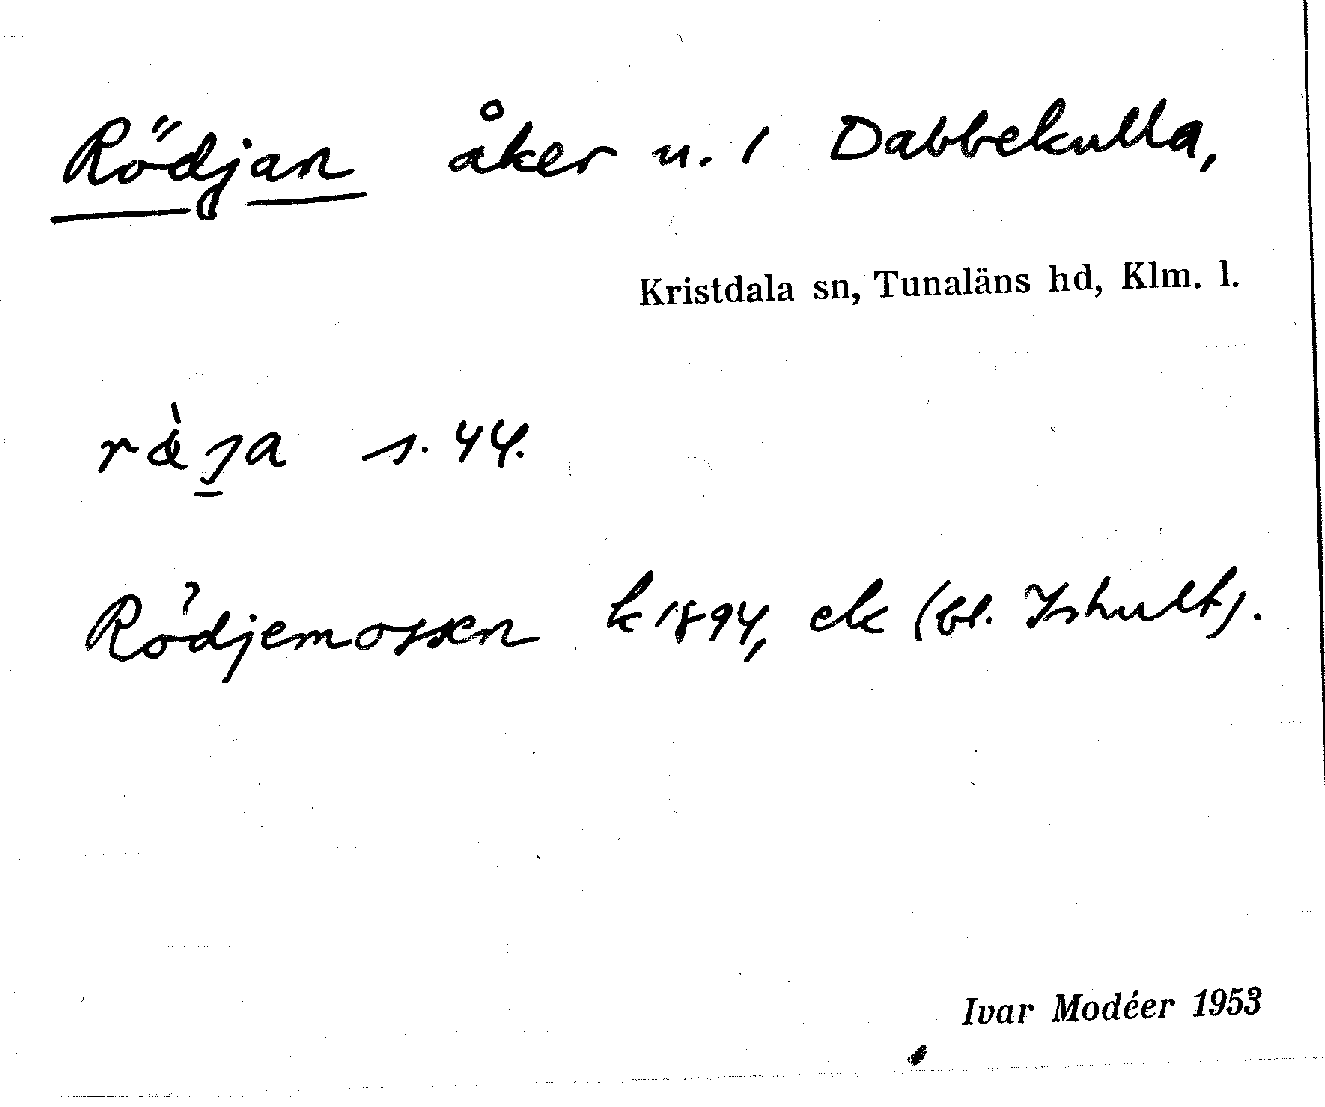 Rödjan åker n. 1 Dabbekulla,
Kristdala sn, Tunaläns hd, Klm. l.
s. 44.
Rödjemossen k 1894, ek (bl. Ishult).
Ivar Modéer 1953